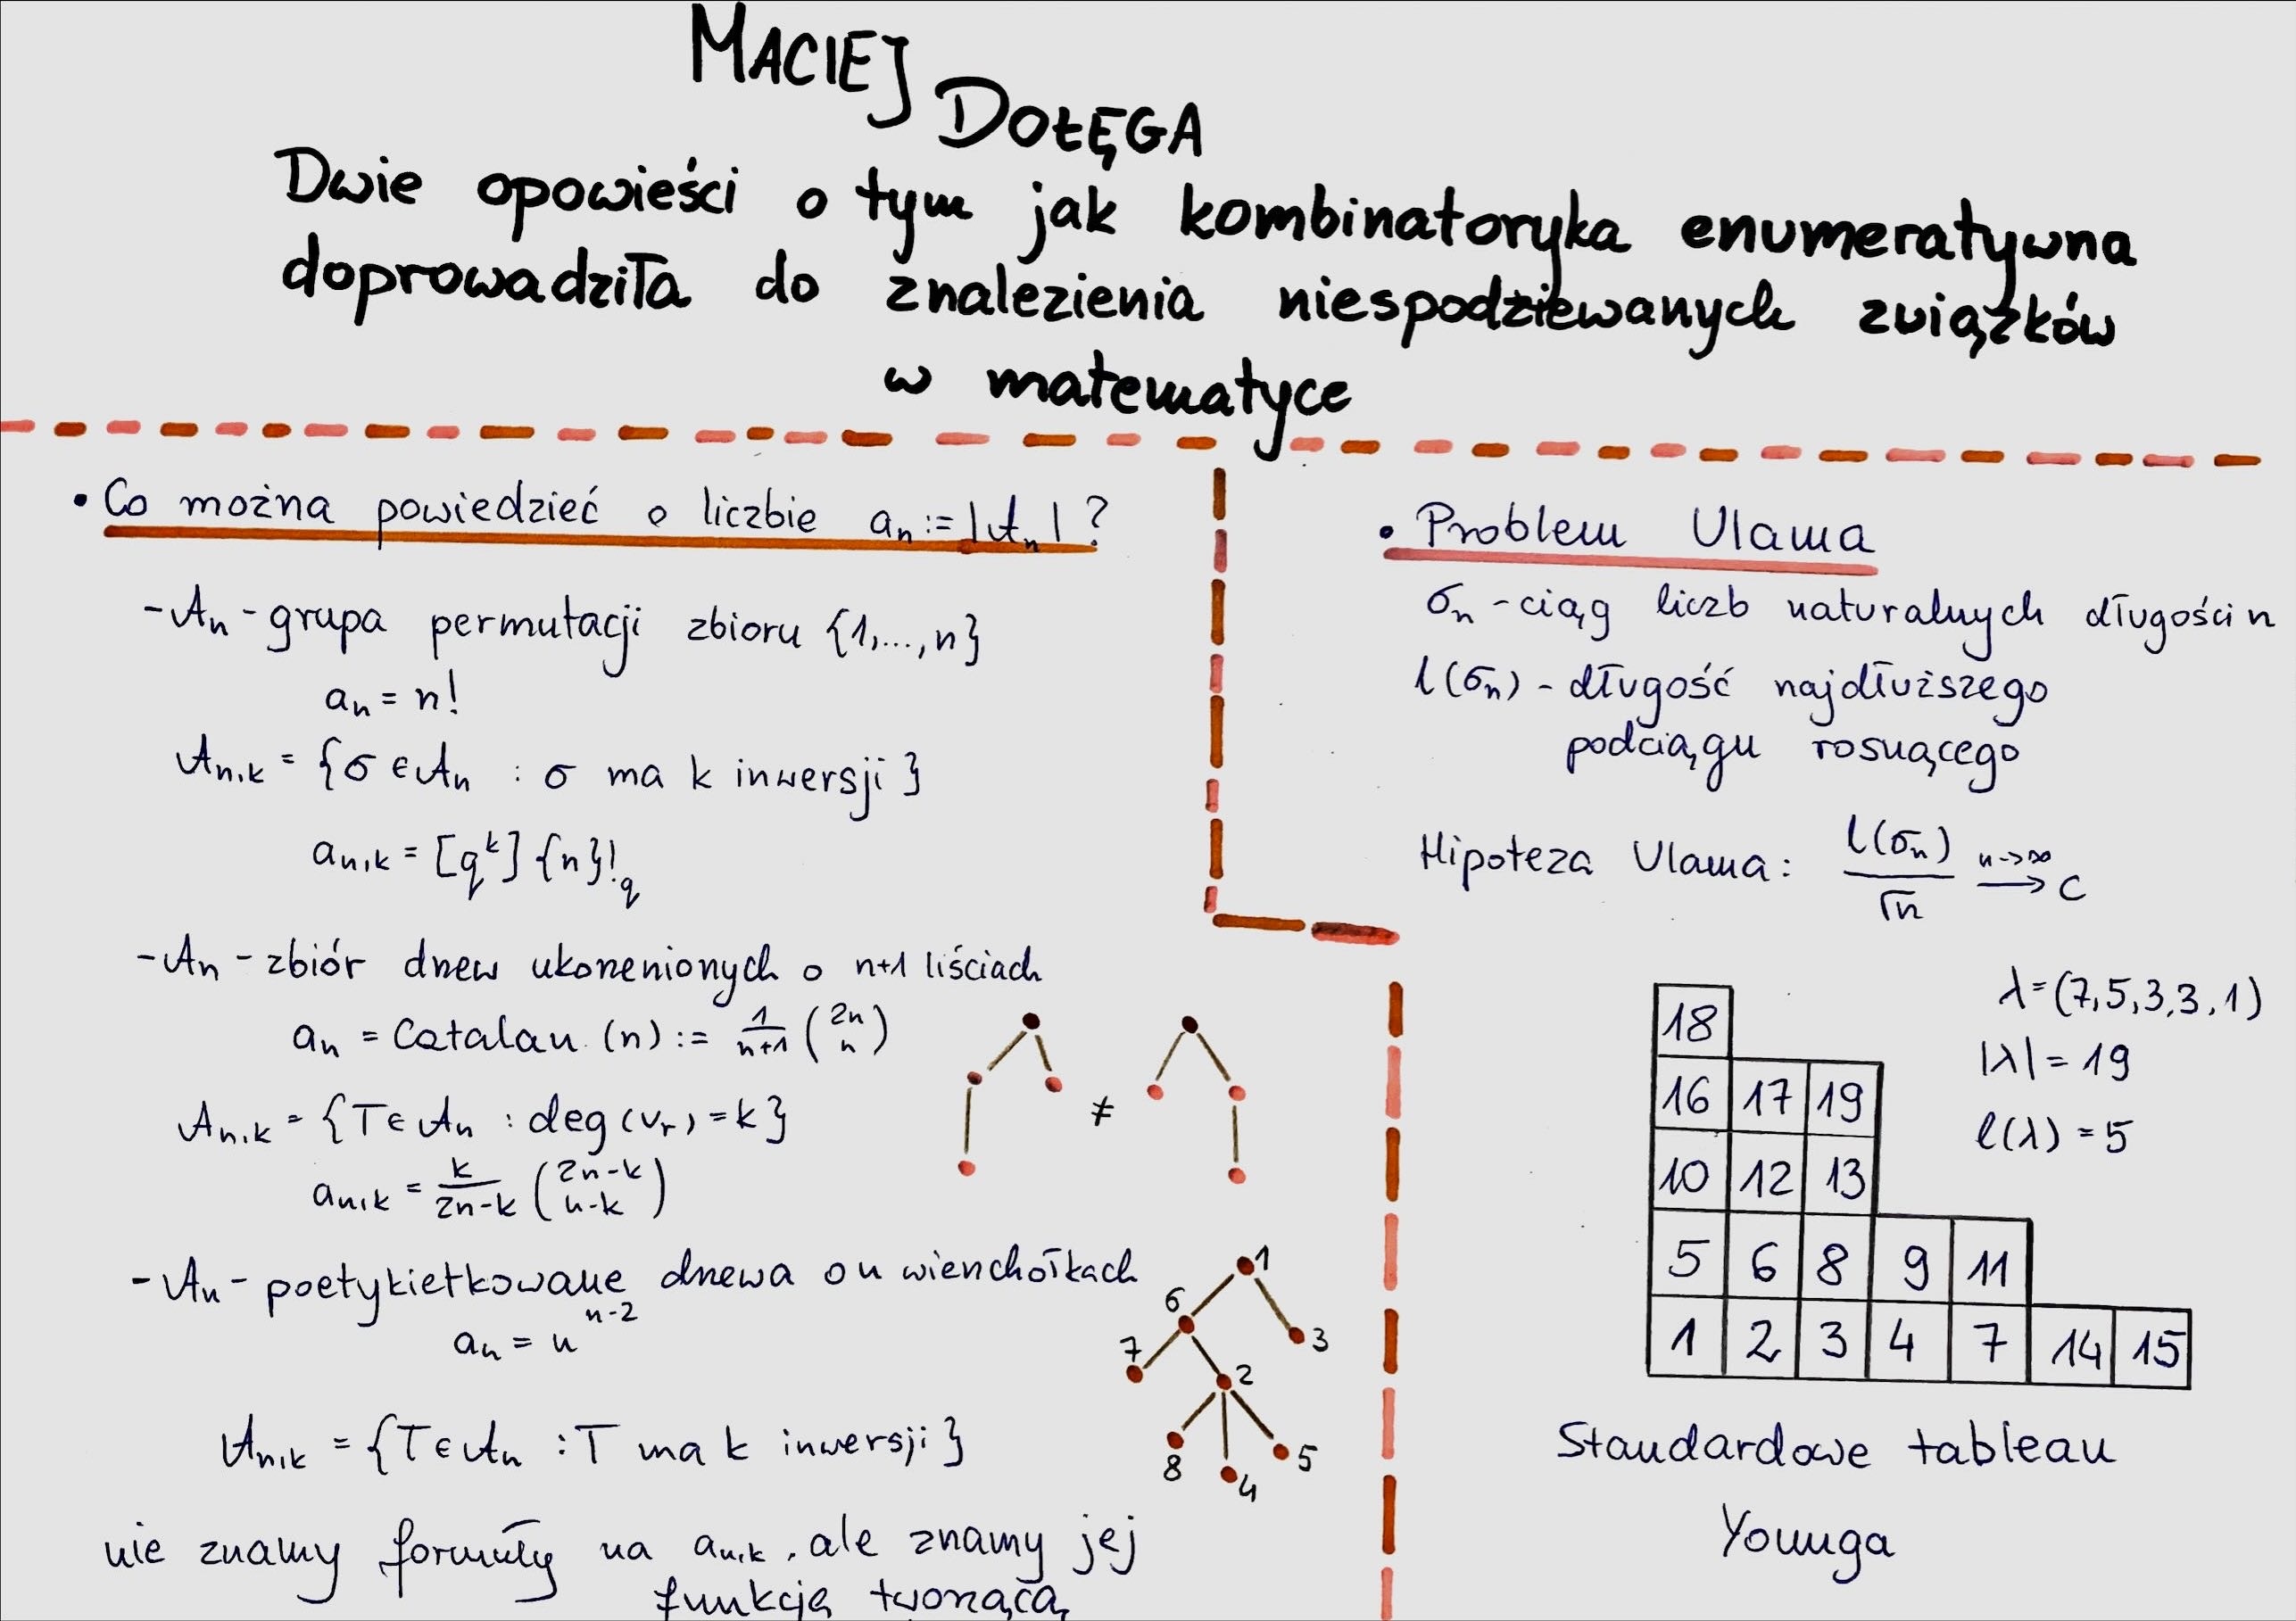 MACIEJ
DOŁĘGA
Dwie opowieści o tym jak kombinatoryka enumeratywna
doprowadziła do znalezienia niespodziewanych związków
w matematyce
• Co można powiedzieć o liczbie aₙ := |𝒜ₙ| ?
- 𝒜ₙ - grupa permutacji zbioru {1,...,n}
aₙ = n!
𝒜ₙ,ₖ = {σ ∈ 𝒜ₙ : σ ma k inwersji}
aₙ,ₖ = [q^k] {n}!_q
- 𝒜ₙ - zbiór drzew ukorzenionych o n+1 liściach
aₙ = Catalan (n) := 1/(n+1) (2n n)
≠
𝒜ₙ,ₖ = {T ∈ 𝒜ₙ : deg(vᵣ) = k}
aₙ,ₖ = k/(2n-k) (2n-k n-k)
- 𝒜ₙ - poetykietkowane drzewa o n wierzchołkach
aₙ = n^(n-2)
1
6
3
7
2
8
4
5
𝒜ₙ,ₖ = {T ∈ 𝒜ₙ : T ma k inwersji}
nie znamy formuły na aₙ,ₖ, ale znamy jej
funkcję tworzącą
• Problem Ulama
σₙ - ciąg liczb naturalnych długości n
l(σₙ) - długość najdłuższego
podciągu rosnącego
Hipoteza Ulama: l(σₙ)/√n →(n→∞) c
λ = (7,5,3,3,1)
|λ| = 19
ℓ(λ) = 5
18
16 17 19
10 12 13
5 6 8 9 11
1 2 3 4 7 14 15
Standardowe tableau
Younga